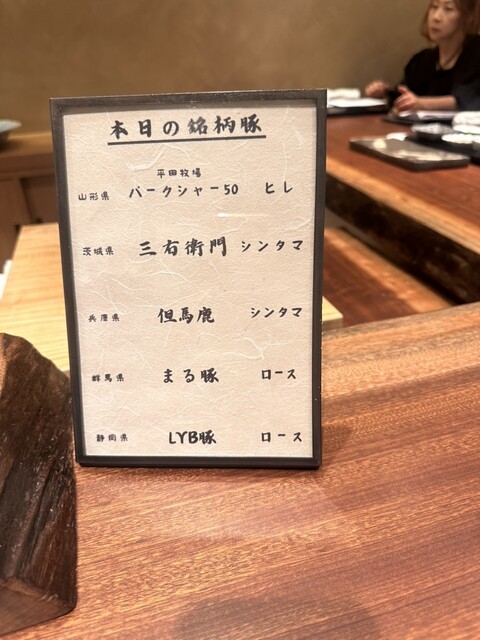 本日の銘柄豚
平田牧場
山形県 バークシャー50 ヒレ
茨城県 三右衛門 シンタマ
兵庫県 但馬鹿 シンタマ
群馬県 まる豚 ロース
静岡県 LYB豚 ロース